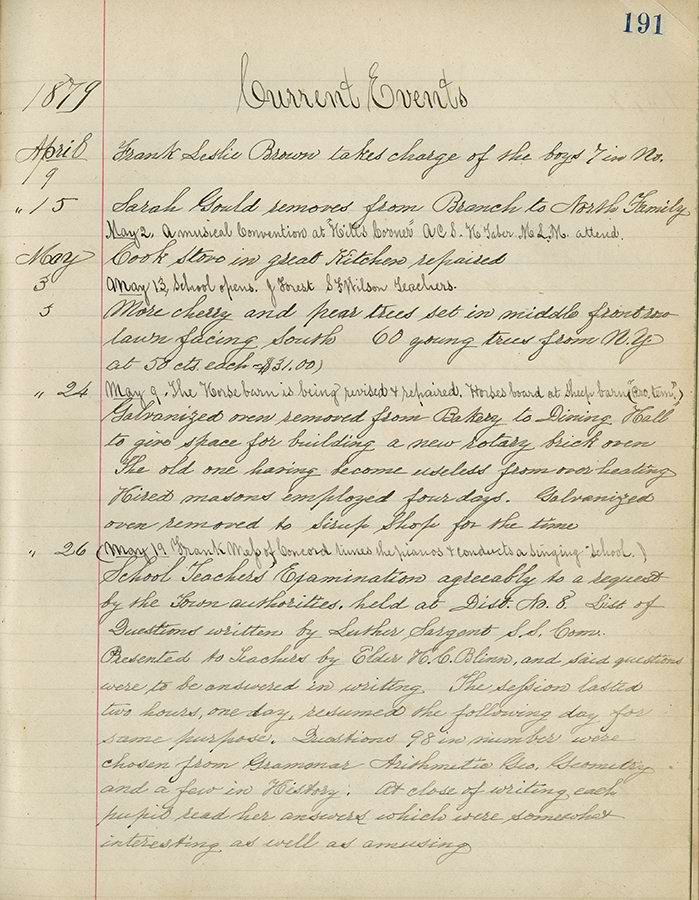 191
1879 Current Events
April 9 Frank Leslie Brown takes charge of the boys 7 in No.
" 15 Sarah Gould removes from Branch to North Family
May 2. A musical Convention at "Hill's Corner" A C S. K Taber. M L M. attend.
May 3 Cook stove in great Kitchen repaired
May 13, School opens. J Forest S F Wilson Teachers.
5 More cherry and pear trees set in middle front row
lawn facing South 60 young trees from N.Y.
at 50 cts. each = $31.00)
May 9. The Horse barn is being revised & repaired. Horses board at Sheep barn ("pro. tem".)
" 24 Galvanized oven removed from Bakery to Dining Hall
to give space for building a new rotary brick oven
The old one having become useless from over heating
Hired masons employed four days. Galvanized
oven removed to Sirup Shop for the time
(May 19 Frank Mess of Concord tunes the pianos & conducts a singing school.)
" 26 School Teachers Examination agreeably to a request
by the Town authorities. held at Dist. No. 8. List of
Questions written by Luther Sargent S. S. Com.
Presented to Teachers by Elder H. C. Blinn, and said questions
were to be answered in writing. The session lasted
two hours, one day, resumed the following day for
same purpose. Questions 98 in number were
chosen from Grammar Arithmetic Geo. Geometry
and a few in History. At close of writing each
pupil read her answers which were somewhat
interesting as well as amusing